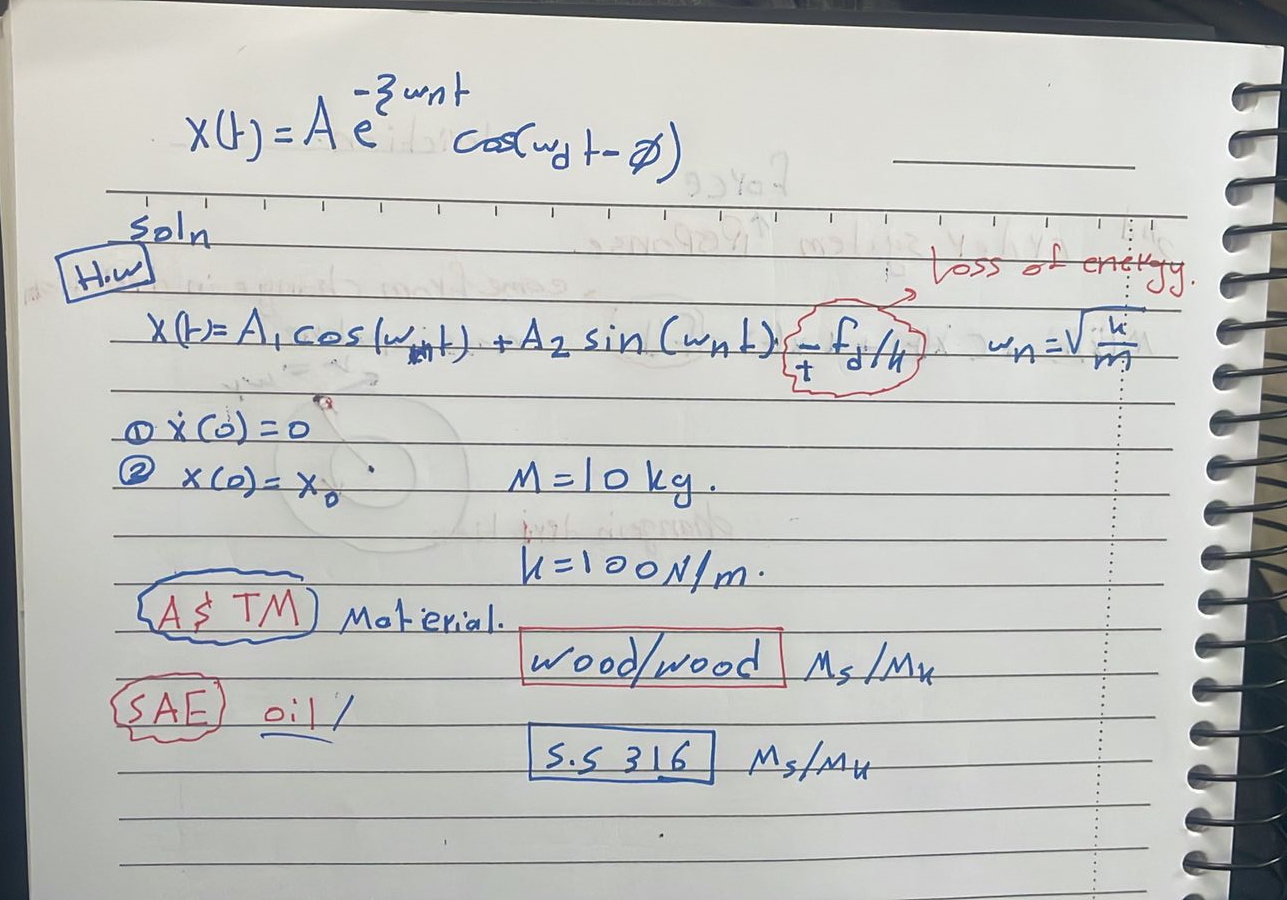 x(t) = A e^{-ξ wnt} cos(wd t - ø)
soln
H.w
Loss of energy.
x(t) = A₁ cos(wnt) + A₂ sin (wn t) ∓ fd/k wn = √k/m
① ẋ(0) = 0
② x(0) = x₀ M = 10 kg.
k = 100 N/m.
A$ TM Material.
wood/wood Ms/Mk
SAE oil /
S.S 316 Ms/Mk